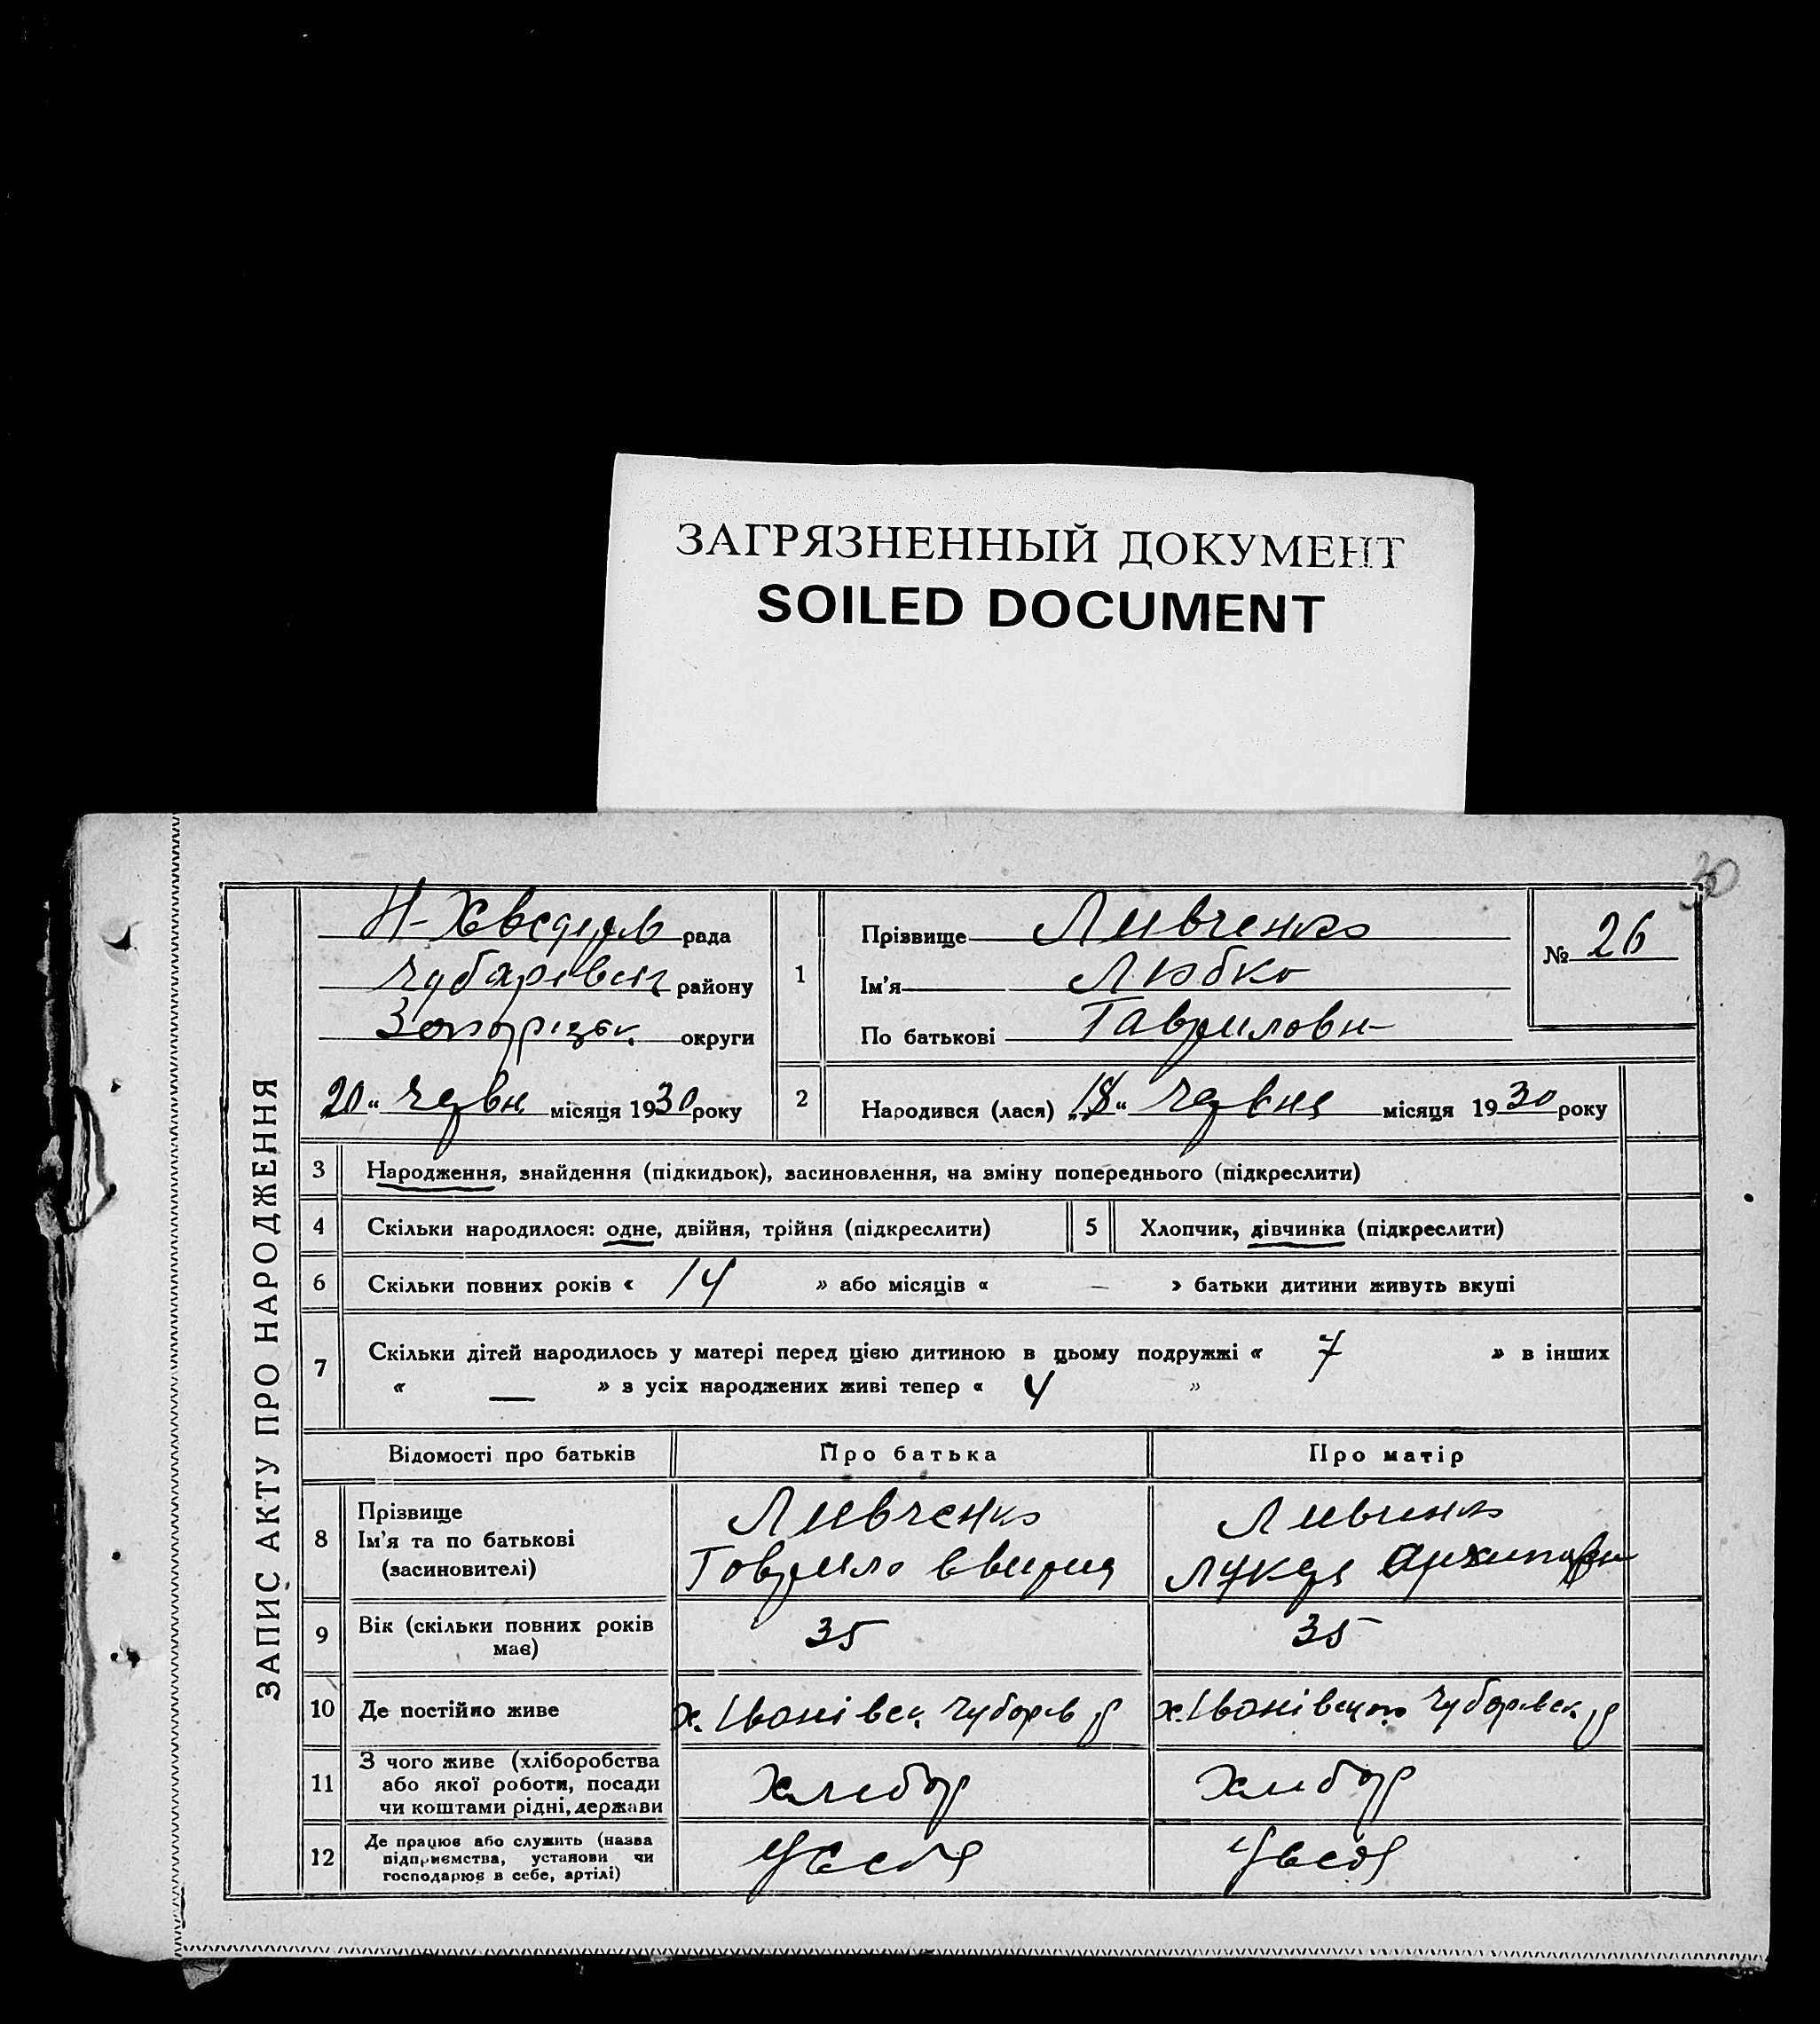 ЗАГРЯЗНЕННЫЙ ДОКУМЕНТ
SOILED DOCUMENT
30
ЗАПИС АКТУ ПРО НАРОДЖЕННЯ
рада
району
округи
20 " червн місяця 1930 року
1
Прізвище Ливченко
Ім'я Любко
По батькові Гавриловн
№ 26
2
Народився (лася) „18" червня місяця 1930 року
3 Народження, знайдення (підкидьок), засиновлення, на зміну попереднього (підкреслити)
4 Скільки народилося: одне, двійня, трійня (підкреслити)
5 Хлопчик, дівчинка (підкреслити)
6 Скільки повних років « 14 » або місяців « — » батьки дитини живуть вкупі
7 Скільки дітей народилось у матері перед цією дитиною в цьому подружжі « 7 » в інших
« — » з усіх народжених живі тепер « 4 »
Відомості про батьків Про батька Про матір
8 Прізвище
Ім'я та по батькові
(засиновителі)
Ливченко
Гаврило
Ливченко
9 Вік (скільки повних років
має)
35
35
10 Де постійно живе х. Іванівск. Чубарів р х. Чубарівск р
11 З чого живе (хліборобства
або якої роботи, посади
чи коштами рідні, держави
хлебор
хлебор
12 Де працює або служить (назва
підприємства, установи чи
господарює в себе, артілі)
У себя
У себя